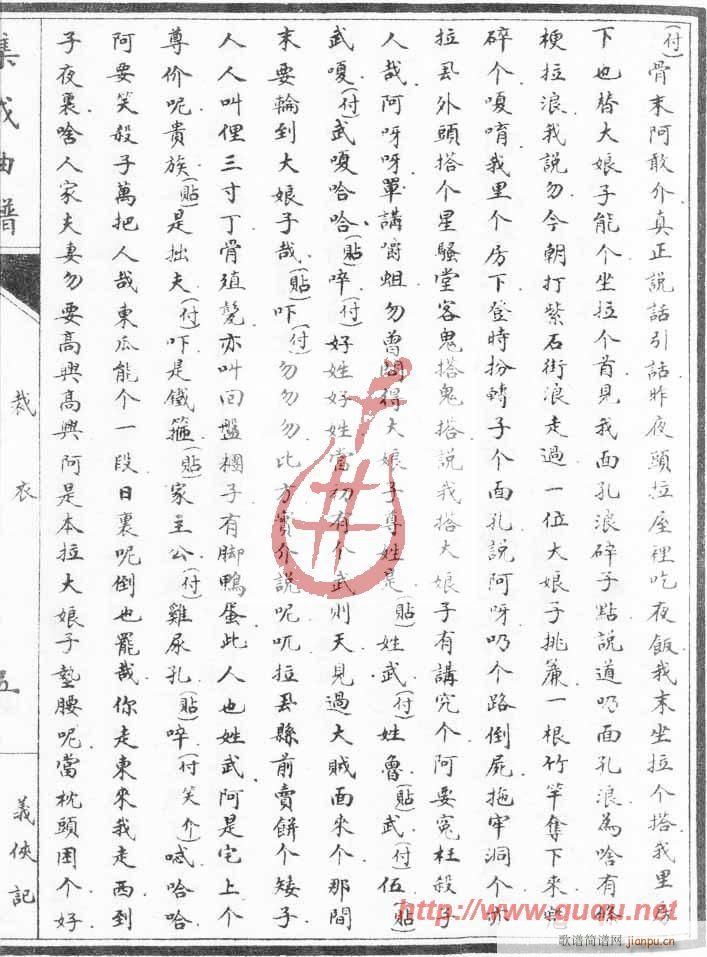 (付)骨末阿敢介真正説話引話昨夜頭拉屋裡吃夜飯我末坐拉个搭我里房
下也替大娘子能个坐拉个首見我面孔浪碎子點説道吤面孔浪為啥有條
梗拉浪我説勿今朝打紫石街浪走過一位大娘子挑簾一根竹竿奪下來
碎个嗄唷我里个房下登時扮轉子个面孔説阿呀吤个路倒屍拖牢洞个
拉厾外頭搭个星騷堂客鬼搭鬼搭説我搭大娘子有講究个阿要冤枉殺子
人哉阿呀呀單講嚼蛆勿曾問得大娘子尊姓是(貼)姓武(付)姓魯(貼)武(付)伍(貼)
武嗄(付)武嗄哈哈(貼)啐(付)好姓好姓當初有个武則天見過大賊面來个那間
末要輪到大娘子哉(貼)吓(付)勿勿勿比方實介説呢吤拉厾縣前賣餅个矮子
人人叫俚三寸丁骨殖亦叫回盤糰子有脚鴨蛋此人也姓武阿是宅上个
尊价呢貴族(貼)是拙夫(付)吓是鐵箍(貼)家主公(付)雞尿孔(貼)啐(付笑介)哈哈
阿要笑殺子萬把人哉東瓜能个一段日裏呢倒也罷哉你走東來我走西到
子夜裏啥人家夫妻勿要高興高興阿是本拉大娘子墊腰呢當枕頭困个好
集成曲譜
裁衣
五
義俠記
http://www.qupu.net
歌谱简谱网
jianpu.cn